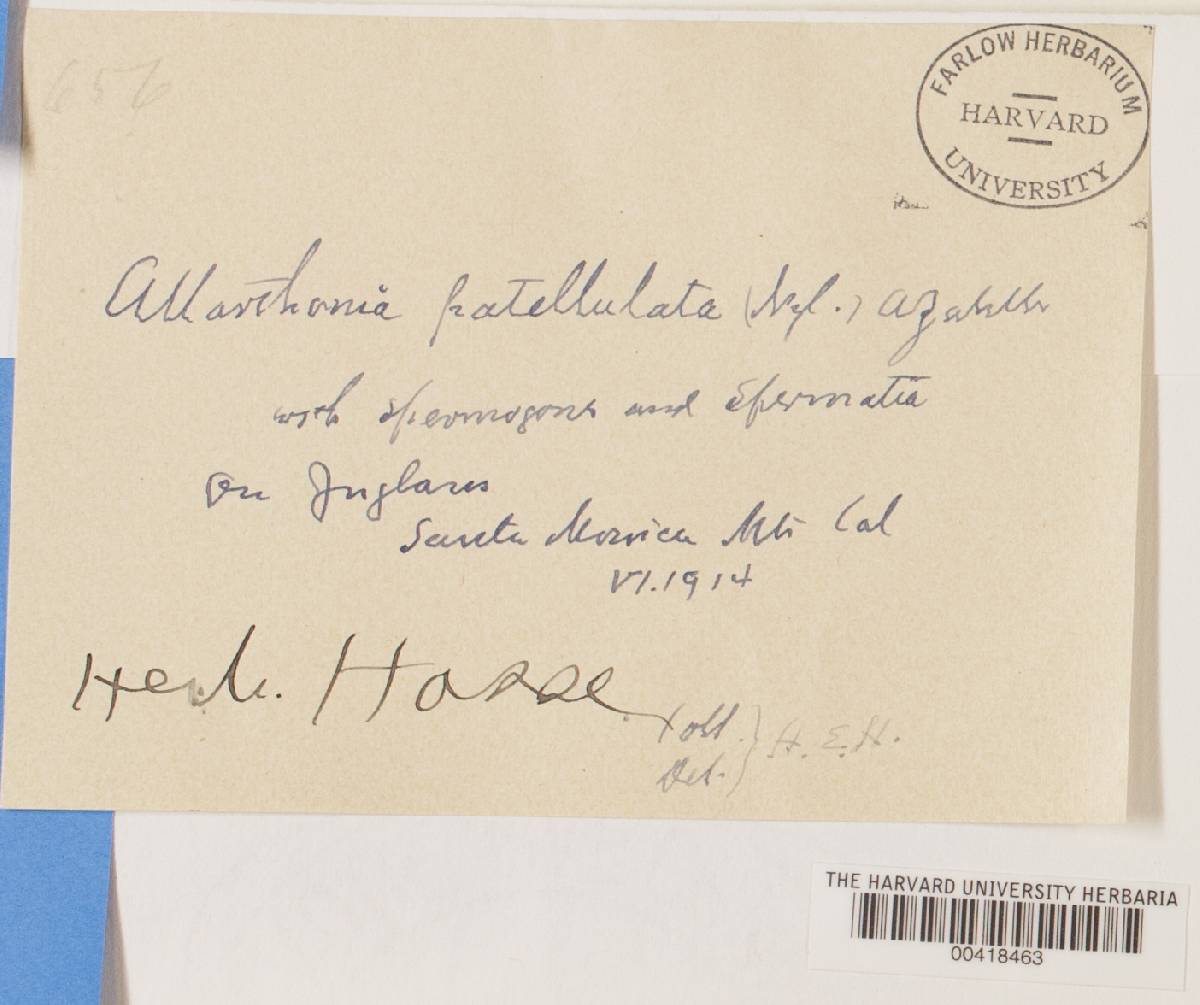 656
FARLOW HERBARIUM
HARVARD
UNIVERSITY
Allarthonia patellulata (Nyl.) Azahlbr
with spermogons and spermatia
On Juglans
Santa Monica Mts Cal
VI.1914
Herb. Hasse
Coll. } H.E.H.
Det.
THE HARVARD UNIVERSITY HERBARIA
00418463